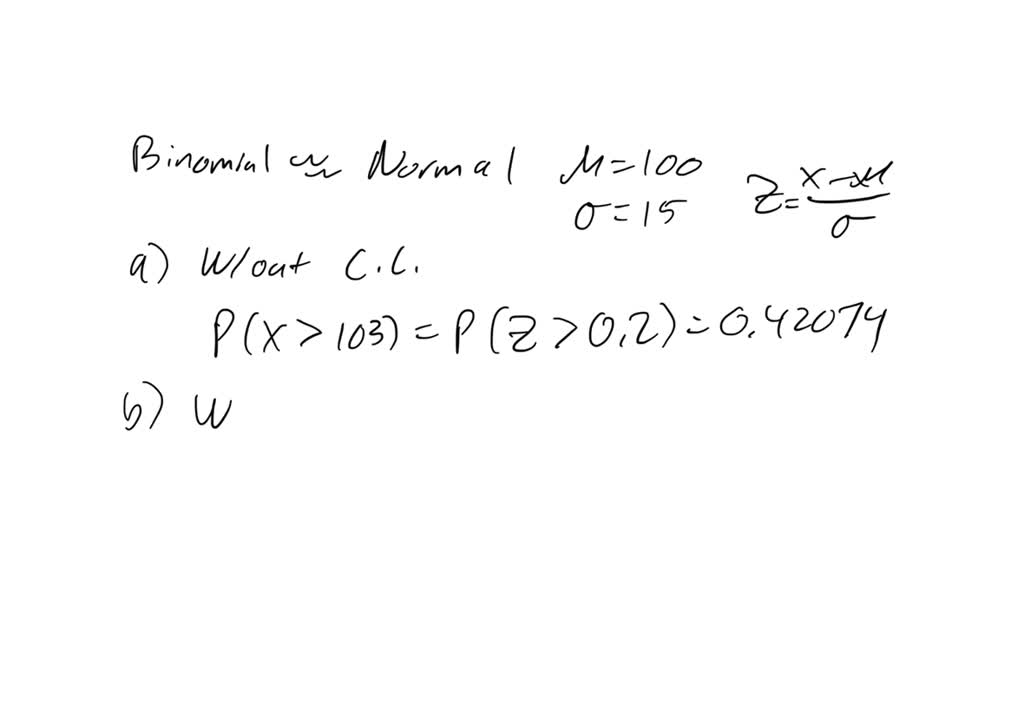 Binomial ≈ Normal μ=100 Z=(x-μ)/σ
σ=15
a) W/out C.C.
P(X>103)=P(Z>0.2)=0.42074
b) W